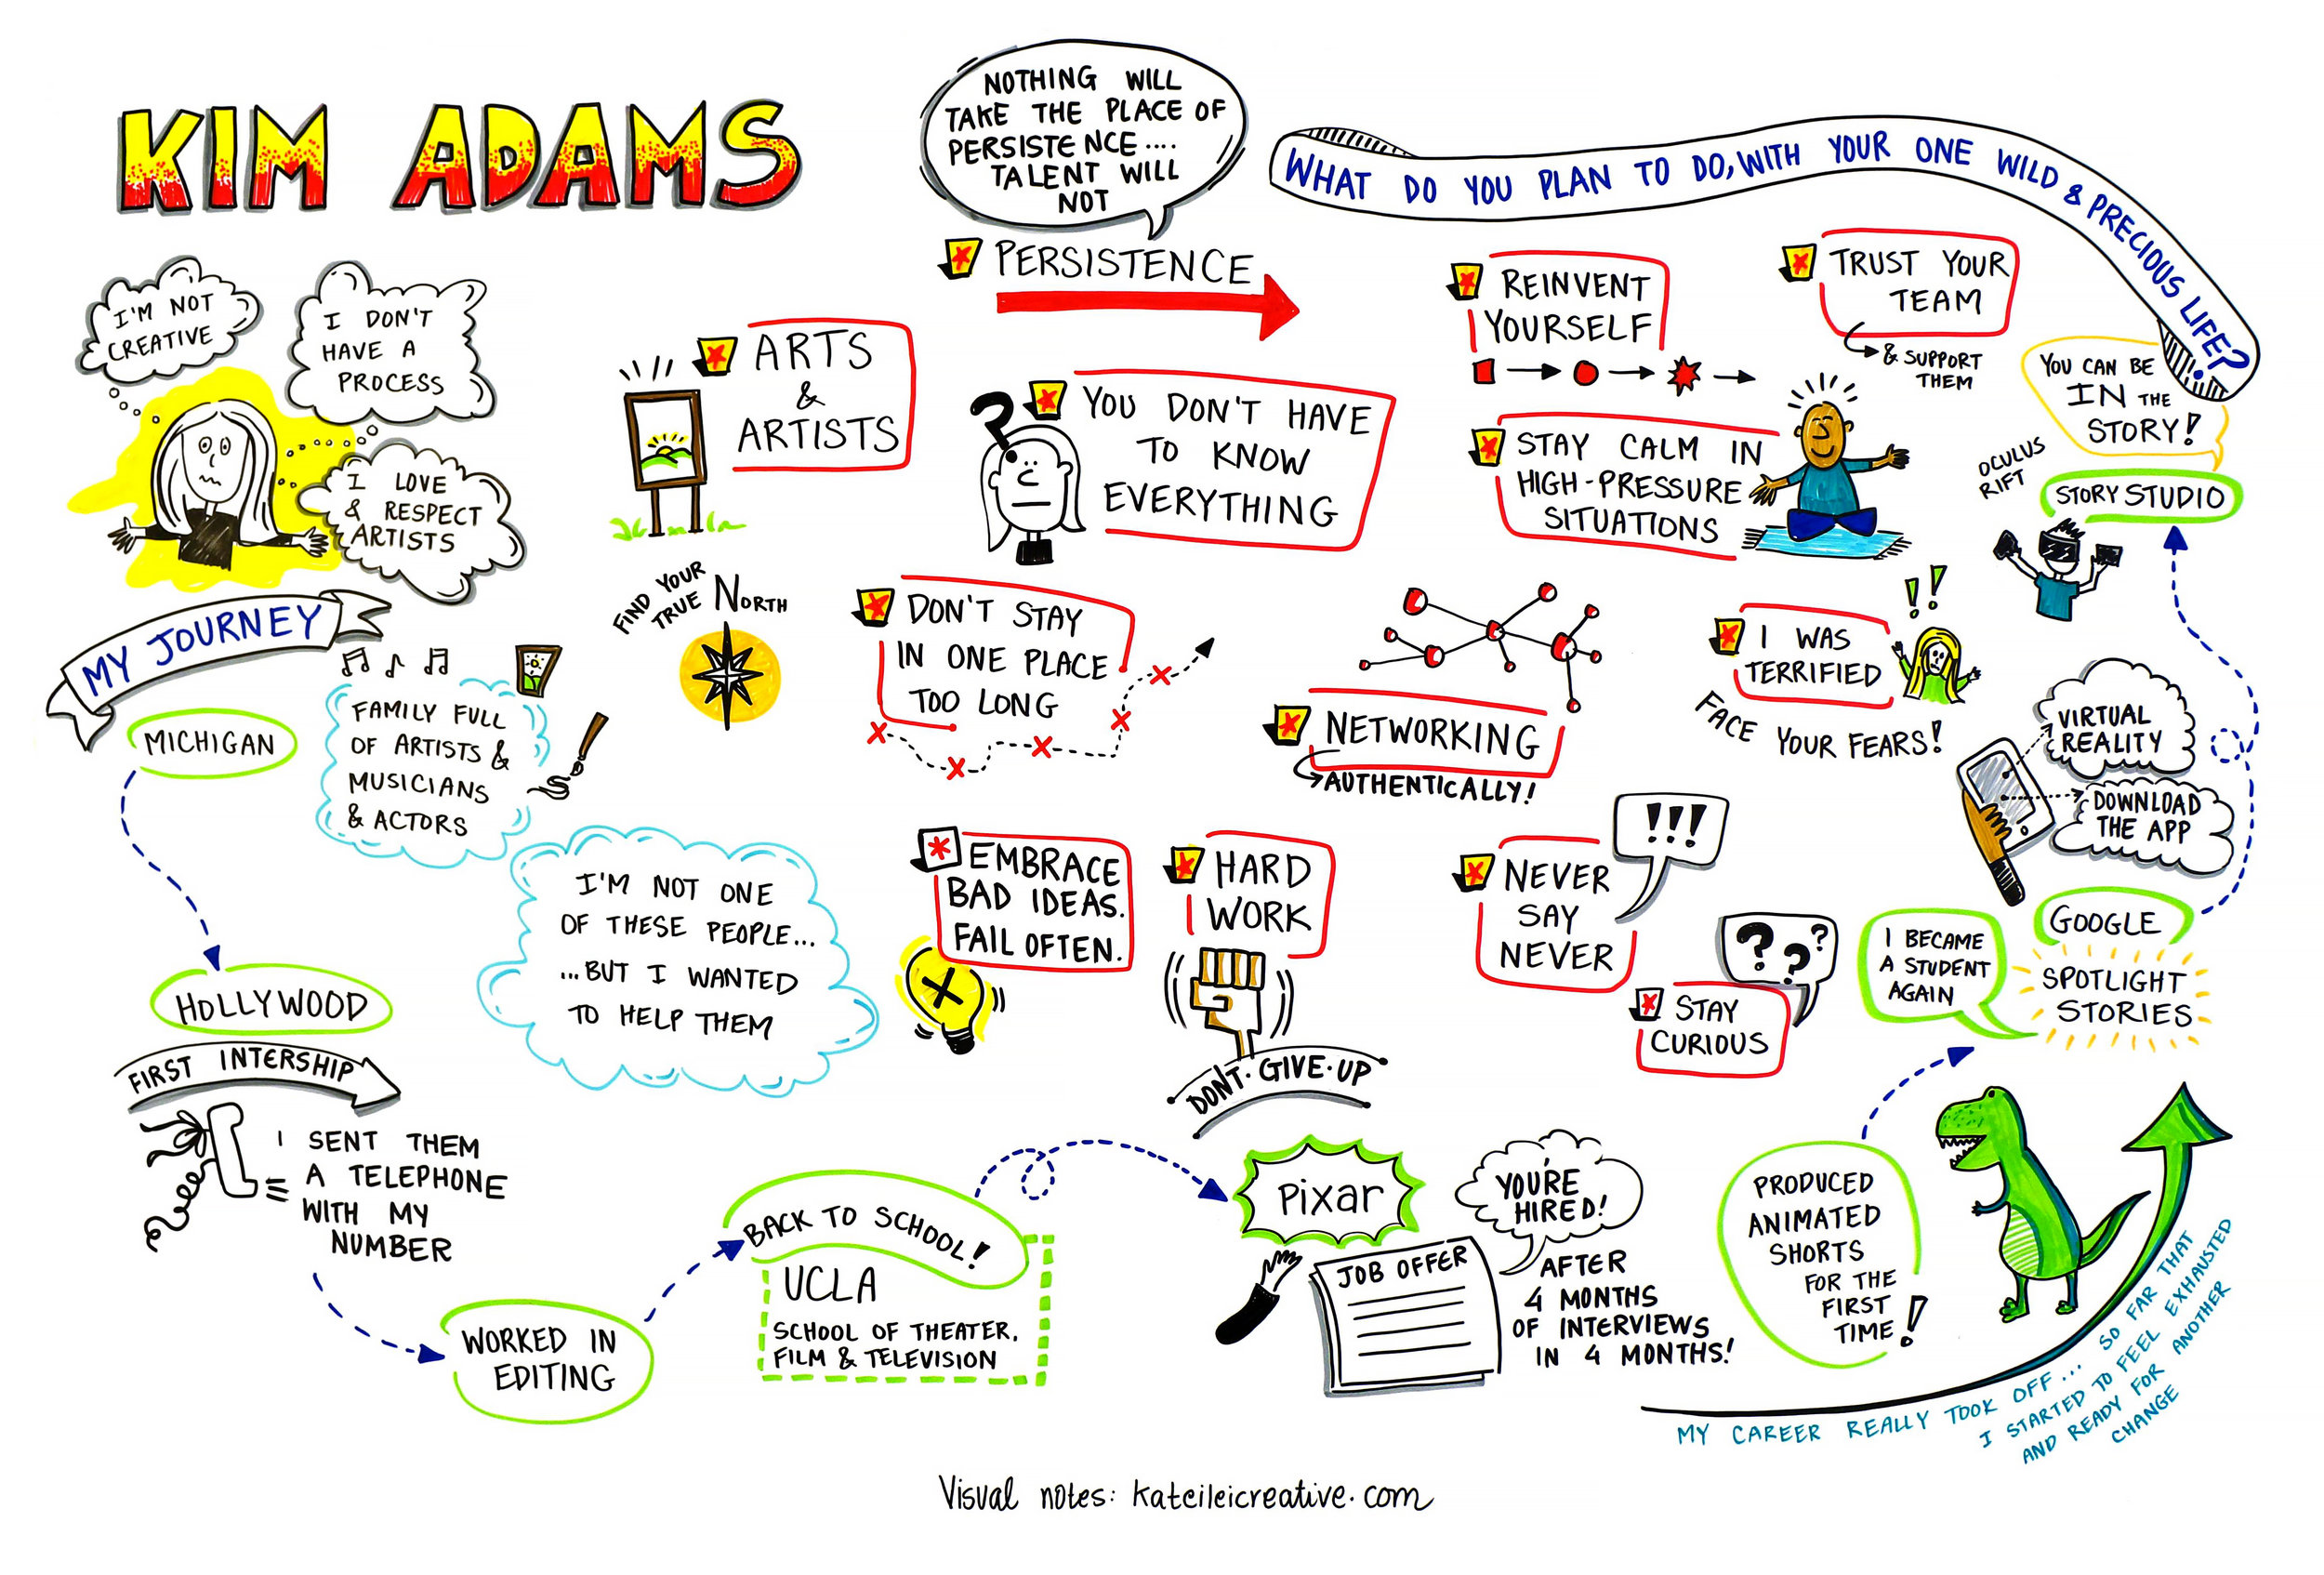 KIM ADAMS
NOTHING WILL
TAKE THE PLACE OF
PERSISTENCE....
TALENT WILL
NOT
PERSISTENCE
WHAT DO YOU PLAN TO DO, WITH YOUR ONE WILD & PRECIOUS LIFE?
I'M NOT
CREATIVE
I DON'T
HAVE A
PROCESS
I LOVE
& RESPECT
ARTISTS
ARTS
&
ARTISTS
?
YOU DON'T HAVE
TO KNOW
EVERYTHING
REINVENT
YOURSELF
TRUST YOUR
TEAM
& SUPPORT
THEM
STAY CALM IN
HIGH-PRESSURE
SITUATIONS
YOU CAN BE
IN THE
STORY!
OCULUS
RIFT
STORY STUDIO
MY JOURNEY
MICHIGAN
FAMILY FULL
OF ARTISTS &
MUSICIANS
& ACTORS
FIND YOUR
TRUE NORTH
DON'T STAY
IN ONE PLACE
TOO LONG
NETWORKING
AUTHENTICALLY!
!!
I WAS
TERRIFIED
FACE YOUR FEARS!
VIRTUAL
REALITY
DOWNLOAD
THE APP
I'M NOT ONE
OF THESE PEOPLE...
...BUT I WANTED
TO HELP THEM
EMBRACE
BAD IDEAS.
FAIL OFTEN.
HARD
WORK
DON'T·GIVE·UP
!!!
NEVER
SAY
NEVER
???
STAY
CURIOUS
I BECAME
A STUDENT
AGAIN
GOOGLE
SPOTLIGHT
STORIES
HOLLYWOOD
FIRST INTERSHIP
I SENT THEM
A TELEPHONE
WITH MY
NUMBER
WORKED IN
EDITING
BACK TO SCHOOL!
UCLA
SCHOOL OF THEATER,
FILM & TELEVISION
PIXAR
YOU'RE
HIRED!
JOB OFFER
AFTER
4 MONTHS
OF INTERVIEWS
IN 4 MONTHS!
PRODUCED
ANIMATED
SHORTS
FOR THE
FIRST
TIME!
MY CAREER REALLY TOOK OFF... SO FAR THAT
I STARTED TO FEEL EXHAUSTED
AND READY FOR ANOTHER
CHANGE
Visual notes: kateileicreative.com